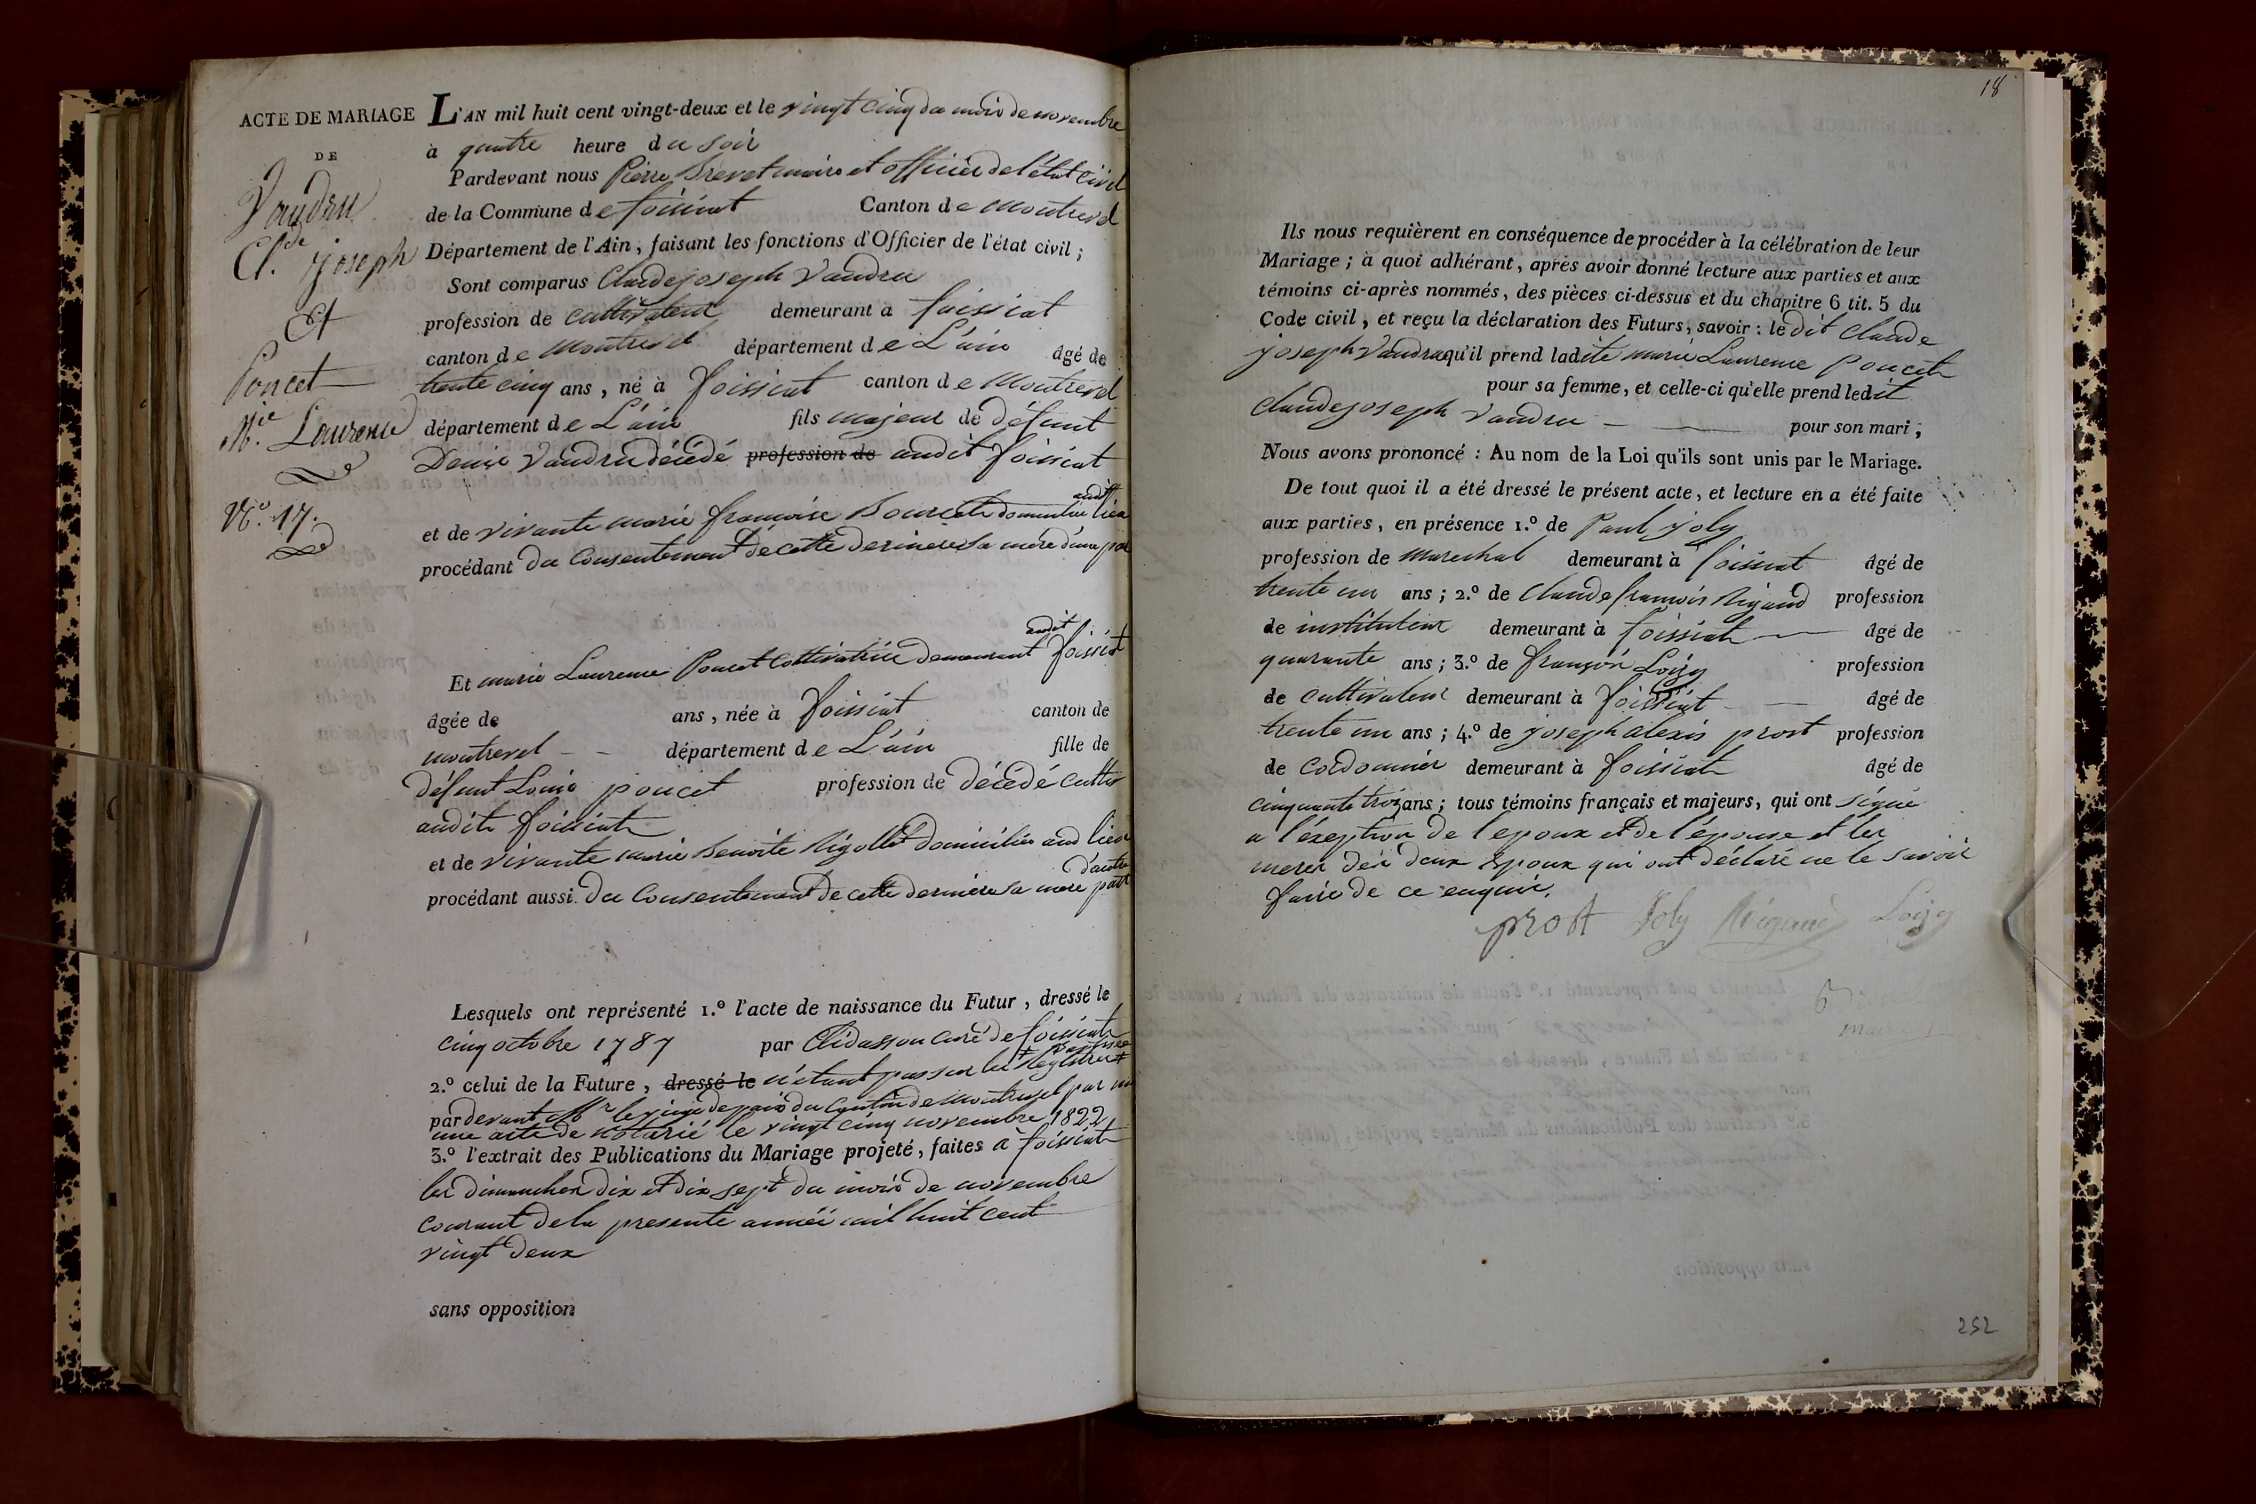 ACTE DE MARIAGE
DE
Vaudru
Cl.de joseph
Et
Poncet
M.ie Laurence
N.o 17.
L'AN mil huit cent vingt-deux et le vingt cinq du mois de novembre
à quatre heure du soir
Pardevant nous Pierre Brevet maire et officier de l'état civil
de la Commune de foissiat Canton de Montrevel
Département de l'Ain, faisant les fonctions d'Officier de l'état civil ;
Sont comparus Claude joseph Vaudru
profession de cultivateur demeurant a foissiat
canton de Montrevel département de L'ain âgé de
trente cinq ans, né à foissiat canton de Montrevel
département de L'ain fils majeur de défunt
Denis Vaudru décédé profession de audit foissiat
audit
et de vivante marie francoise lieu
procédant du Consentement de cette derniere sa mere d'une par
audit
Et marie Laurence Poncet Cultivatrice demeurant foissiat
âgée de ans, née à foissiat canton de
montrevel département de L'ain fille de
défunt Louis poncet profession de décédé cultiv
audit foissiat
et de vivante marie Benoite Rigollet domiciliée aud lieu
d'autre
procédant aussi du Consentement de cette derniere sa mere part
Lesquels ont représenté 1.o l'acte de naissance du Futur, dressé le
cinq octobre 1787 par Curé de foissiat
2.o celui de la Future, dressé le n'étant pas sur les Registres
pardevant Mr le juge de paix du Canton de Montrevel par un
une acte de notarié le vingt cinq novembre 1822
3.o l'extrait des Publications du Mariage projeté, faites a foissiat
les dimanches dix et dix sept du mois de novembre
courant de la presente année mil huit cent
vingt deux
sans opposition
18
Ils nous requièrent en conséquence de procéder à la célébration de leur
Mariage ; à quoi adhérant, après avoir donné lecture aux parties et aux
témoins ci-après nommés, des pièces ci-dessus et du chapitre 6 tit. 5 du
Code civil, et reçu la déclaration des Futurs, savoir : le dit Claude
joseph Vaudru qu'il prend ladite marie Laurence Poncet
pour sa femme, et celle-ci qu'elle prend ledit
Claude joseph Vaudru pour son mari ;
Nous avons prononcé : Au nom de la Loi qu'ils sont unis par le Mariage.
De tout quoi il a été dressé le présent acte, et lecture en a été faite
aux parties, en présence 1.o de Paul joly
profession de marechal demeurant à foissiat âgé de
trente un ans ; 2.o de Claude francois Rigaud profession
de instituteur demeurant à foissiat âgé de
quarante ans ; 3.o de françois Loizy profession
de cultivateur demeurant à foissiat âgé de
trente un ans ; 4.o de joseph alexis prost profession
de cordonnier demeurant à foissiat âgé de
cinquante trois ans ; tous témoins français et majeurs, qui ont signé
a l'exeption de l'epoux et de l'épouse et les
meres des deux Epoux qui ont déclaré ne le savoir
faire de ce enquis.
prost Joly Rigaud Loizy
252